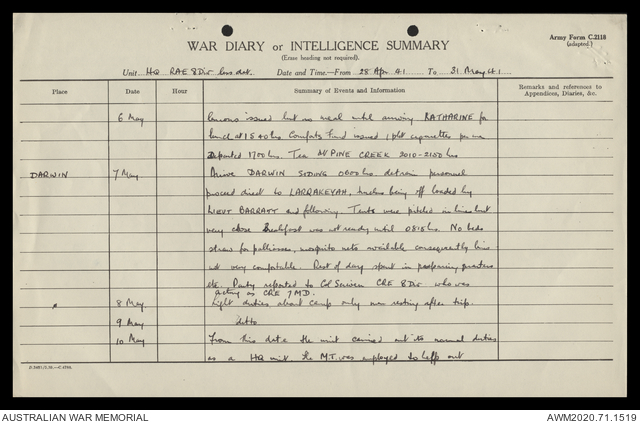 Army Form C.2118
(adapted.)
WAR DIARY or INTELLIGENCE SUMMARY
(Erase heading not required).
Unit HQ RAE 8 Div less det. Date and Time—From 28 Apr. 41. To 31 May 41.
Place Date Hour Summary of Events and Information Remarks and references to Appendices, Diaries, &c.
6 May issued but no meal until arriving KATHARINE for
lunch at 1540 hrs. Comforts Fund issued 1 pkt cigarettes per man
Departed 1700 hrs. Tea at PINE CREEK 2010-2100 hrs
DARWIN 7 May Arrive DARWIN SIDING 0600 hrs detrain personnel
proceed direct to LARRAKEYAH, being off loaded by
LIEUT BARRATT and following. Tents were pitched in lines but
very close Breakfast was not ready until 0815 hrs. No beds
straw for palliasses, mosquito nets available consequently
not very comfortable. Rest of day spent in preparing quarters
etc. Party reported to Col Scriven CRE 8 Div who was
acting as CRE 7 MD.
" 8 May Light duties about camp only men resting after trip.
9 May ditto
10 May From this date the unit carried out its normal duties
as a HQ unit the M.T. was employed to help out
AUSTRALIAN WAR MEMORIAL
AWM2020.71.1519